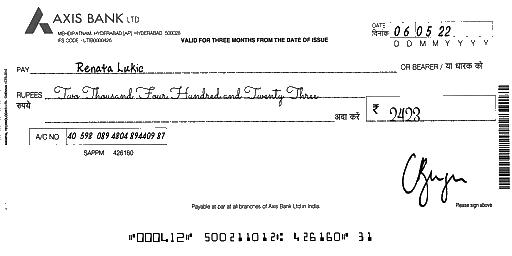 AXIS BANK LTD
MEHDIPATNAM, HYDERABAD [AP] HYDERABAD 500028
IFS CODE - UTIB0000426
VALID FOR THREE MONTHS FROM THE DATE OF ISSUE
DATE
दिनांक 06 05 22
D D M M Y Y Y Y
PAY Renata Lukic OR BEARER / या धारक को
RUPEES Two Thousand Four Hundred and Twenty Three
रुपये अदा करें ₹ 2423
A/C NO 40 598 089 4804 894409 87
SAPPM 426160
Payable at par at all branches of Axis Bank Ltd in India.
Please sign above
"000412" 500211012: 426160" 31